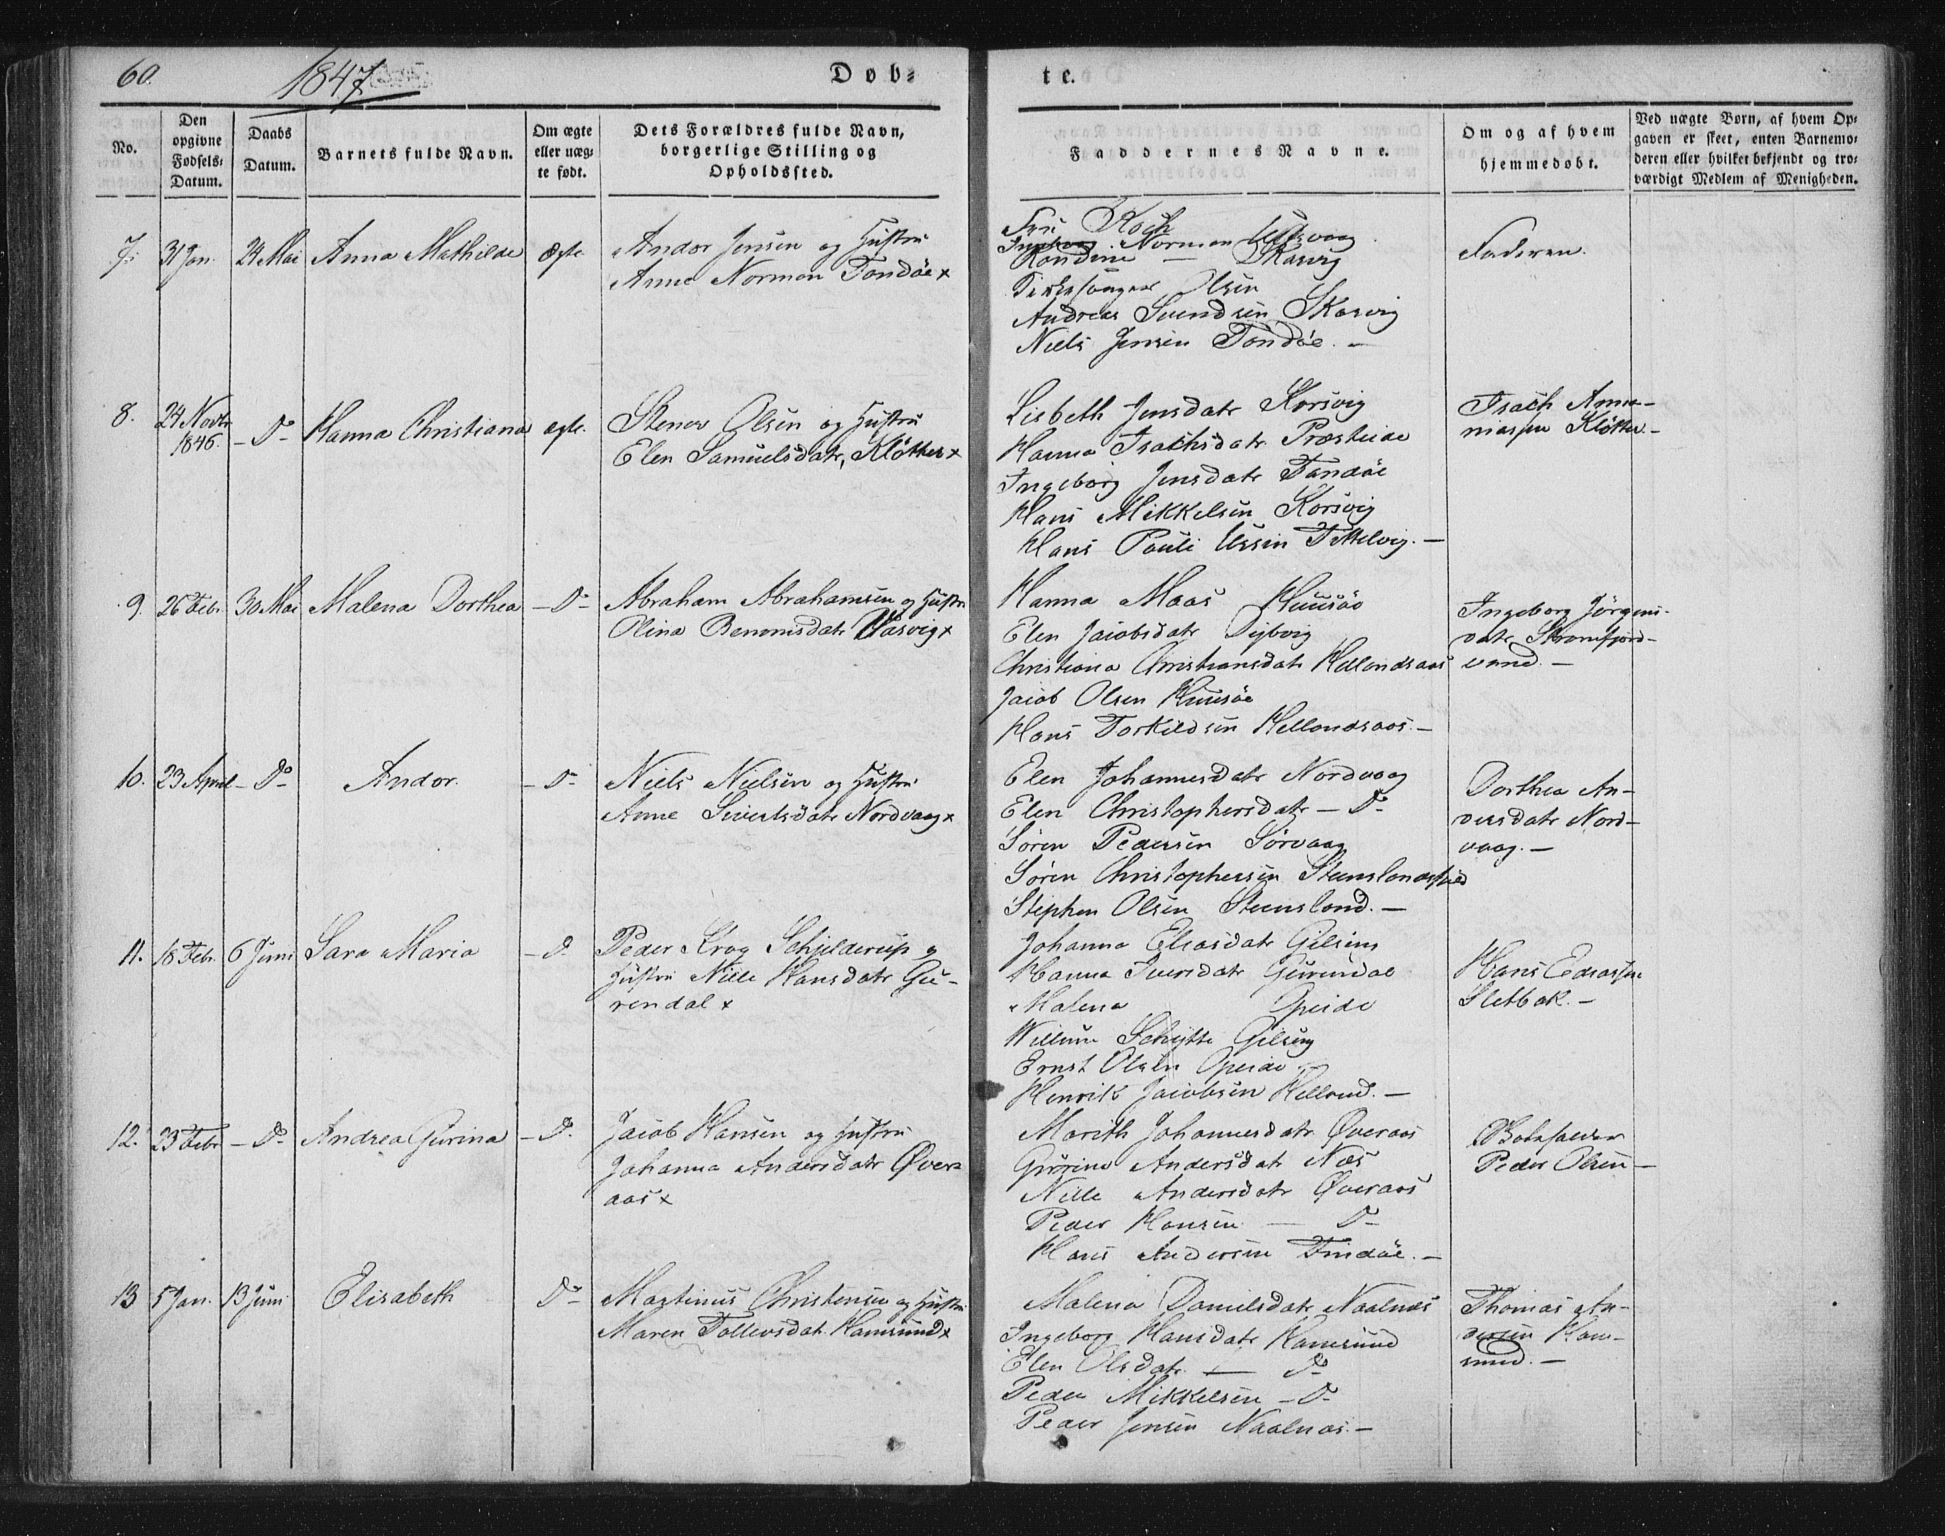 60.
1847
Døb=
te.
No.
Den
opgivne
Fødsels=
Datum.
Daabs
Datum.
Barnets fulde Navn.
Om ægte
eller uæg=
te født.
Dets Forældres fulde Navn,
borgerlige Stilling og
Opholdssted.
Faddernes Navne.
Om og af hvem
hjemmedøbt.
Ved uægte Børn, af hvem Op=
gaven er skeet, enten Barnemo=
deren eller hvilket bekjendt og tro=
værdigt Medlem af Menigheden.
7. 31 Jan. 24 Mai Anna Mathilde ægte
Andor Jensen og Hustru
Anne Norman Tondöe x
Fru Koch
Norman
Rondine — Skarvig
Kirkesanger Olsen
Andreas Svendsen Skarvig
Niels Jensen Tondöe. —
Faderen.
8. 24 Novbr
1846. — Do — Hanna Christiana ægte.
Stener Olsen og Hustru
Elen Samuelsdatr, Kløtten x
Lisbeth Jensdatr Korsvig
Hanna Isachsdatr Præsteide
Ingeborg Jensdatr Tondöe
Hans Mikkelsen Korsvig
Hans Pouli
Isach Amu-
Kløtten —
9. 26 Febr. 30 Mai Malena Dorthea — Do —
Abraham Abrahamsen og Hustru
Olina Benonisdatr Vasvig x
Hanna Maas Huusöe
Elen Jacobsdatr Dybvig
Christiana Christiansdatr Hellandsaas
Jacob Olsen Huusöe
Hans Torkildsen Hellandsaas. —
Ingeborg Jörgens-
datr Skramfjord-
vand. —
10. 23 April — Do — Andor. — Do —
Niels Nielsen og Hustru
Anne Sivertsdatr Nordvaag x
Elen Johannesdatr Nordvaag
Elen Christophersdatr — Do —
Sören Pedersen Sörvaag
Sören Christophersen
Stephen Olsen Steensland. —
Dorthea An-
dersdatr Nord-
vaag. —
11. 18 Febr. 6 Juni Sara Maria — Do
Peder Krog Schjelderup og
Hustru Nille Hansdatr Gu-
rendal x
Johanna Eliasdatr Gilseng
Hanna Iversdatr Gurendal
Malena Opeide
Willum Schytte Gilseng
Ernst Olsen Opeide
Henrik Jacobsen Helland. —
Hans Ediassen
Sletbak. —
12. 23 Febr — Do — Andrea Gurina — Do.
Jacob Hansen og Hustru
Johanna Andersdatr Øver=
aas x
Marith Johannesdatr Øveraas
Gurine Andersdatr Næs
Nille Andersdatr Øveraas
Peder Hansen — Do —
Hans Andersen Findöe. —
Peder Olsen —
13 5 Jan. 13 Juni Elisabeth Do —
Martinus Christensen og Hustru
Maren Tollevsdatr Hamsund x
Malena Danielsdatr Naalnæs
Ingeborg Hansdatr Hamsund
Elen Olsdatr — Do —
Peder Mikkelsen — Do —
Peder Jensen Naalnæs. —
Thomas An-
dersen Ham-
sund. —